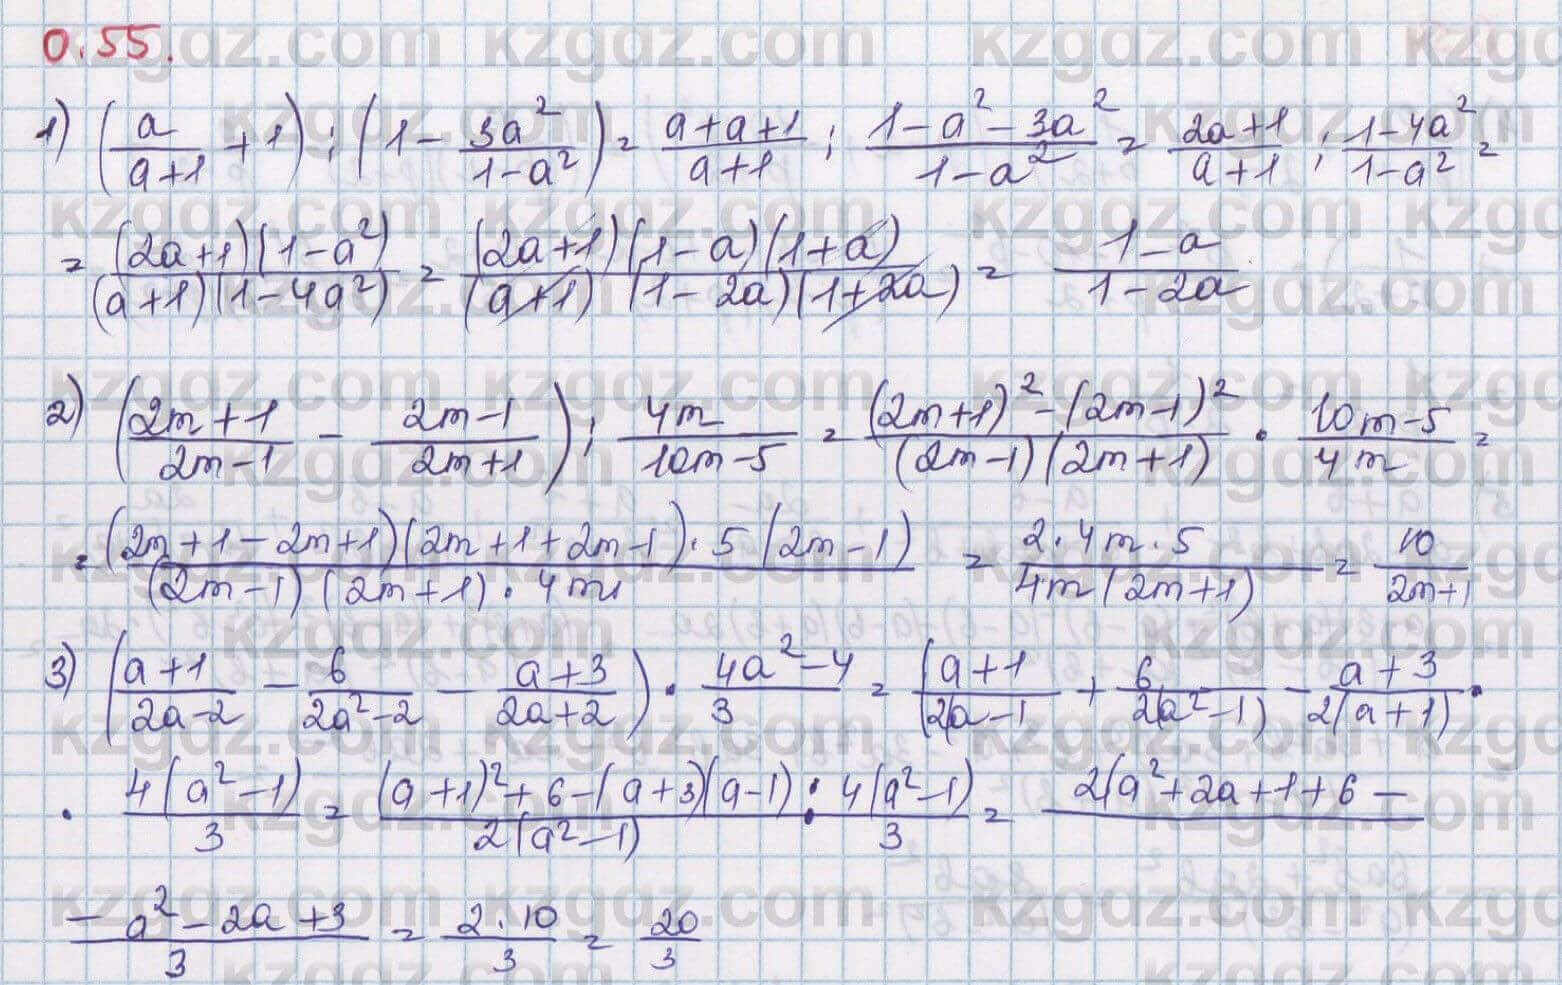 0.55.
1) (a/(a+1) + 1) : (1 - 3a²/(1-a²)) = (a+a+1)/(a+1) : (1-a²-3a²)/(1-a²) = (2a+1)/(a+1) : (1-4a²)/(1-a²) =
= (2a+1)(1-a²)/((a+1)(1-4a²)) = (2a+1)(1-a)(1+a)/((a+1)(1-2a)(1+2a)) = (1-a)/(1-2a)
2) ((2m+1)/(2m-1) - (2m-1)/(2m+1)) : 4m/(10m-5) = ((2m+1)²-(2m-1)²)/((2m-1)(2m+1)) · (10m-5)/4m =
= (2m+1-2m+1)(2m+1+2m-1)·5(2m-1)/((2m-1)(2m+1)·4m) = 2·4m·5/(4m(2m+1)) = 10/(2m+1)
3) ((a+1)/(2a-2) - 6/(2a²-2) - (a+3)/(2a+2)) · (4a²-4)/3 = ((a+1)/(2(a-1) + 6/(2(a²-1)) - (a+3)/(2(a+1)) ·
· 4(a²-1)/3 = ((a+1)²+6-(a+3)(a-1))/(2(a²-1)) · 4(a²-1)/3 = 2(a²+2a+1+6-
-a²-2a+3/3 = 2·10/3 = 20/3
kzgdz.com